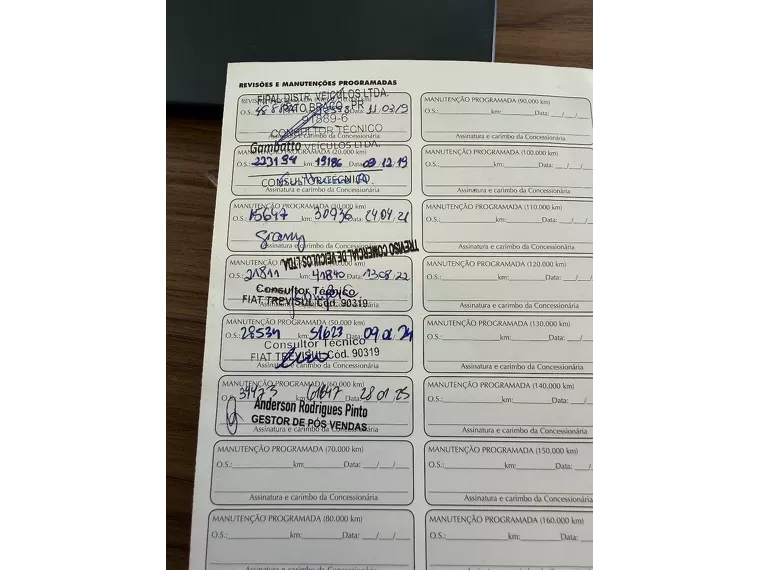 REVISÕES E MANUTENÇÕES PROGRAMADAS
FIPAL DISTR. VEÍCULOS LTDA.
PATO BRANCO - PR
O.S.: Data: 11/03/19
91889-6
CONSULTOR TÉCNICO
Assinatura e carimbo da Concessionária
Gambatto VEÍCULOS LTDA.
MANUTENÇÃO PROGRAMADA (20.000 km)
O.S.: 223194 km: 19186 Data: 09/12/19
CONSULTOR TÉCNICO
Assinatura e carimbo da Concessionária
MANUTENÇÃO PROGRAMADA (30.000 km)
O.S.: 15647 km: 30936 Data: 24/04/21
Assinatura e carimbo da Concessionária
TREVISO COMERCIAL DE VEICULOS LTDA.
MANUTENÇÃO PROGRAMADA
O.S.: 21811 km: 41840 Data: 13/08/22
Consultor Técnico
FIAT TREVISUL Cód. 90319
MANUTENÇÃO PROGRAMADA (50.000 km)
O.S.: 28534 km: 51623 Data: 09 01 24
Consultor Técnico
FIAT TREVISUL Cód. 90319
Assinatura e carimbo da Concessionária
MANUTENÇÃO PROGRAMADA (60.000 km)
O.S.: 34473 km: 61847 Data: 28/01/25
Anderson Rodrigues Pinto
GESTOR DE PÓS VENDAS
Assinatura e carimbo da Concessionária
MANUTENÇÃO PROGRAMADA (70.000 km)
O.S.: km: Data: / /
Assinatura e carimbo da Concessionária
MANUTENÇÃO PROGRAMADA (80.000 km)
O.S.: km: Data: / /
Assinatura e carimbo da Concessionária
MANUTENÇÃO PROGRAMADA (90.000 km)
O.S.: km: Data: / /
Assinatura e carimbo da Concessionária
MANUTENÇÃO PROGRAMADA (100.000 km)
O.S.: km: Data: / /
Assinatura e carimbo da Concessionária
MANUTENÇÃO PROGRAMADA (110.000 km)
O.S.: km: Data: / /
Assinatura e carimbo da Concessionária
MANUTENÇÃO PROGRAMADA (120.000 km)
O.S.: km: Data: / /
Assinatura e carimbo da Concessionária
MANUTENÇÃO PROGRAMADA (130.000 km)
O.S.: km: Data: / /
Assinatura e carimbo da Concessionária
MANUTENÇÃO PROGRAMADA (140.000 km)
O.S.: km: Data: / /
Assinatura e carimbo da Concessionária
MANUTENÇÃO PROGRAMADA (150.000 km)
O.S.: km: Data: / /
Assinatura e carimbo da Concessionária
MANUTENÇÃO PROGRAMADA (160.000 km)
O.S.: km: Data: /
Assinatura e carimbo da Concessionária